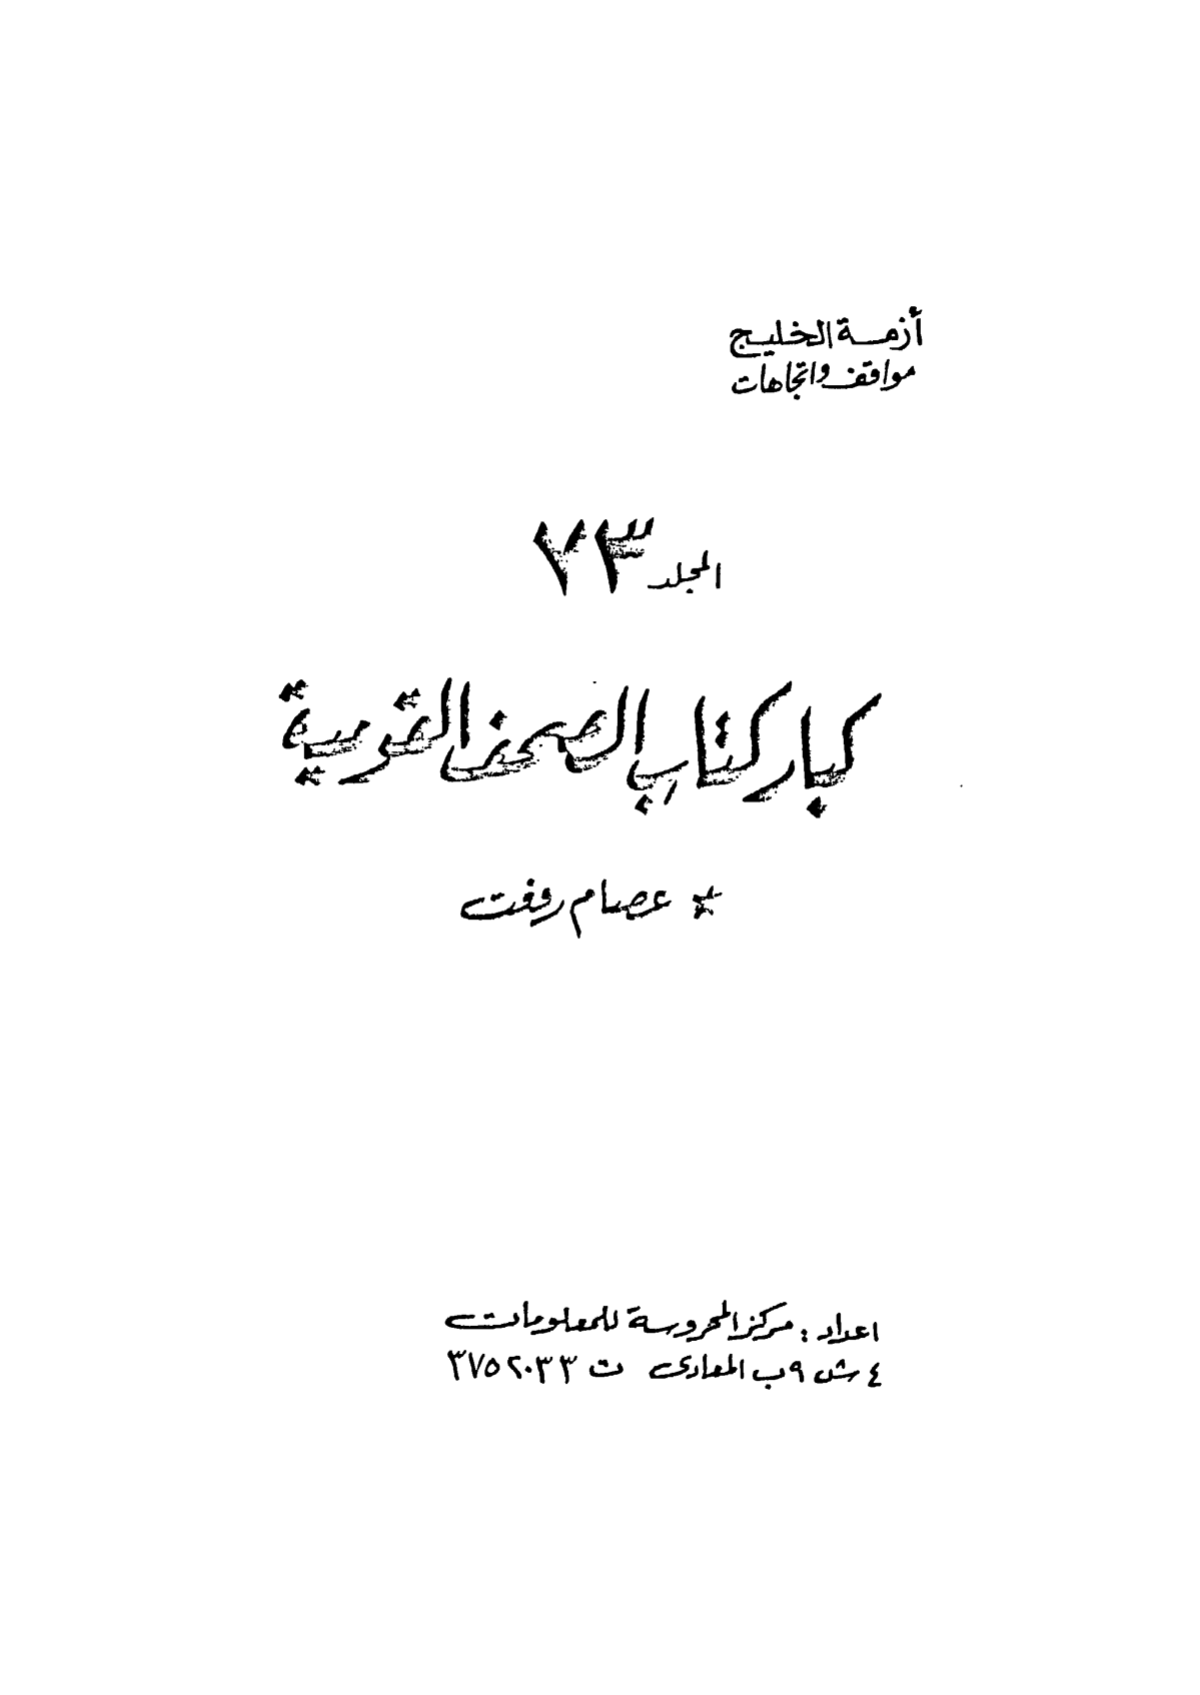 أزمة الخليج
مواقف واتجاهات
المجلد ٧٣
كبار كتاب الصحف القومية
* عصام رفعت
اعداد : مركز المحروسة للمعلومات
٤ ش ٩ب المعادى ت ٣٧٥٢٠٣٣